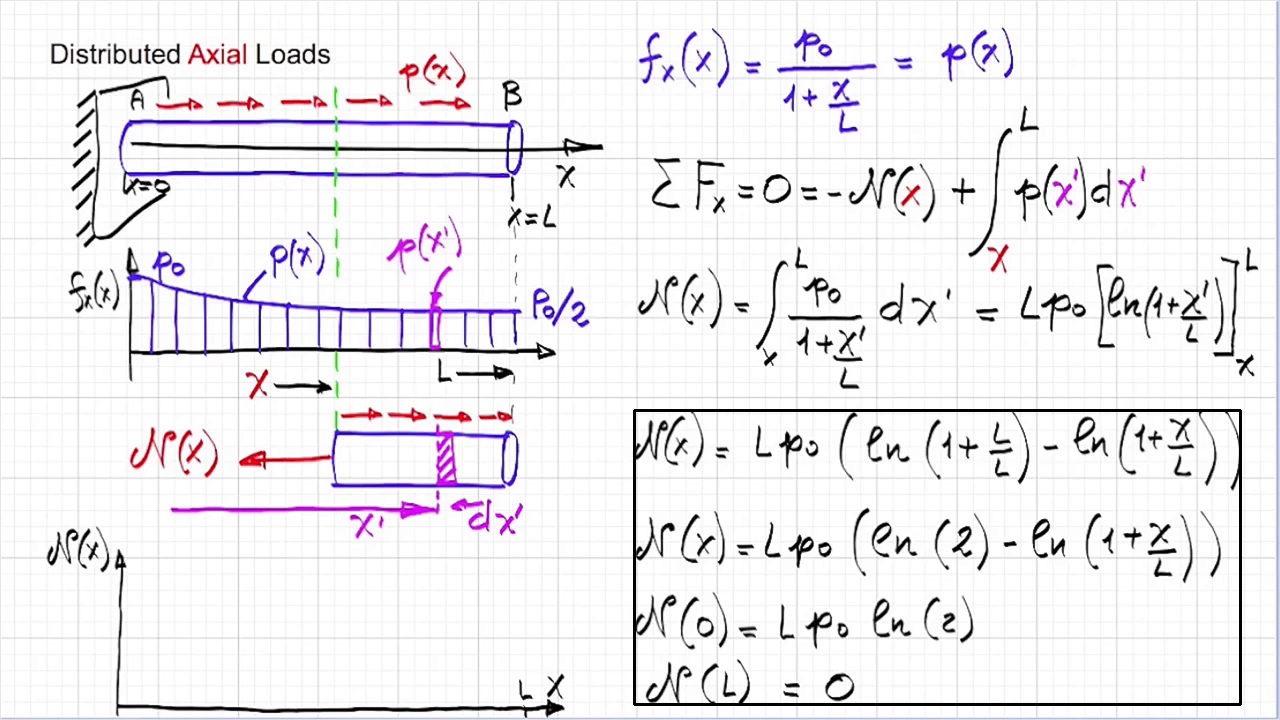 Distributed Axial Loads
p(x)
A
B
x
x=0
x=L
fx(x)
p0
p(x)
p(x')
p0/2
x
L
N(x)
x'
dx'
N(x)
L x
fx(x) = p0 / (1 + x/L) = p(x)
ΣFx = 0 = -N(x) + ∫_x^L p(x')dx'
N(x) = ∫_x^L p0 / (1 + x'/L) dx' = Lp0 [ln(1+x'/L)]_x^L
N(x) = Lp0 (ln (1 + L/L) - ln (1 + x/L))
N(x) = Lp0 (ln (2) - ln (1 + x/L))
N(0) = Lp0 ln (2)
N(L) = 0